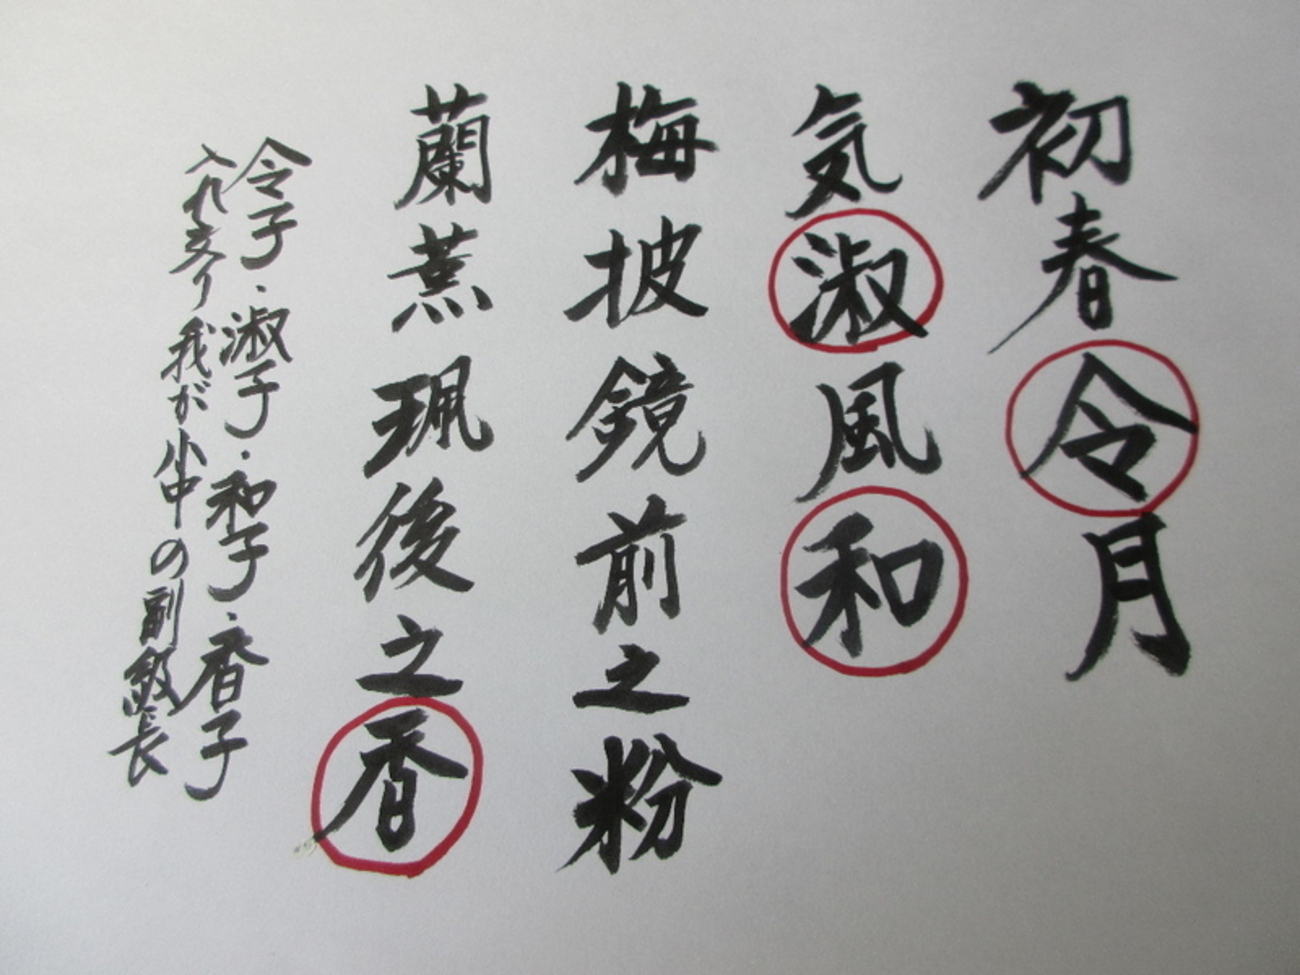 初春令月
気淑風和
梅披鏡前之粉
蘭薫珮後之香
令子・淑子・和子・香子
入れ交り我が小中の副級長